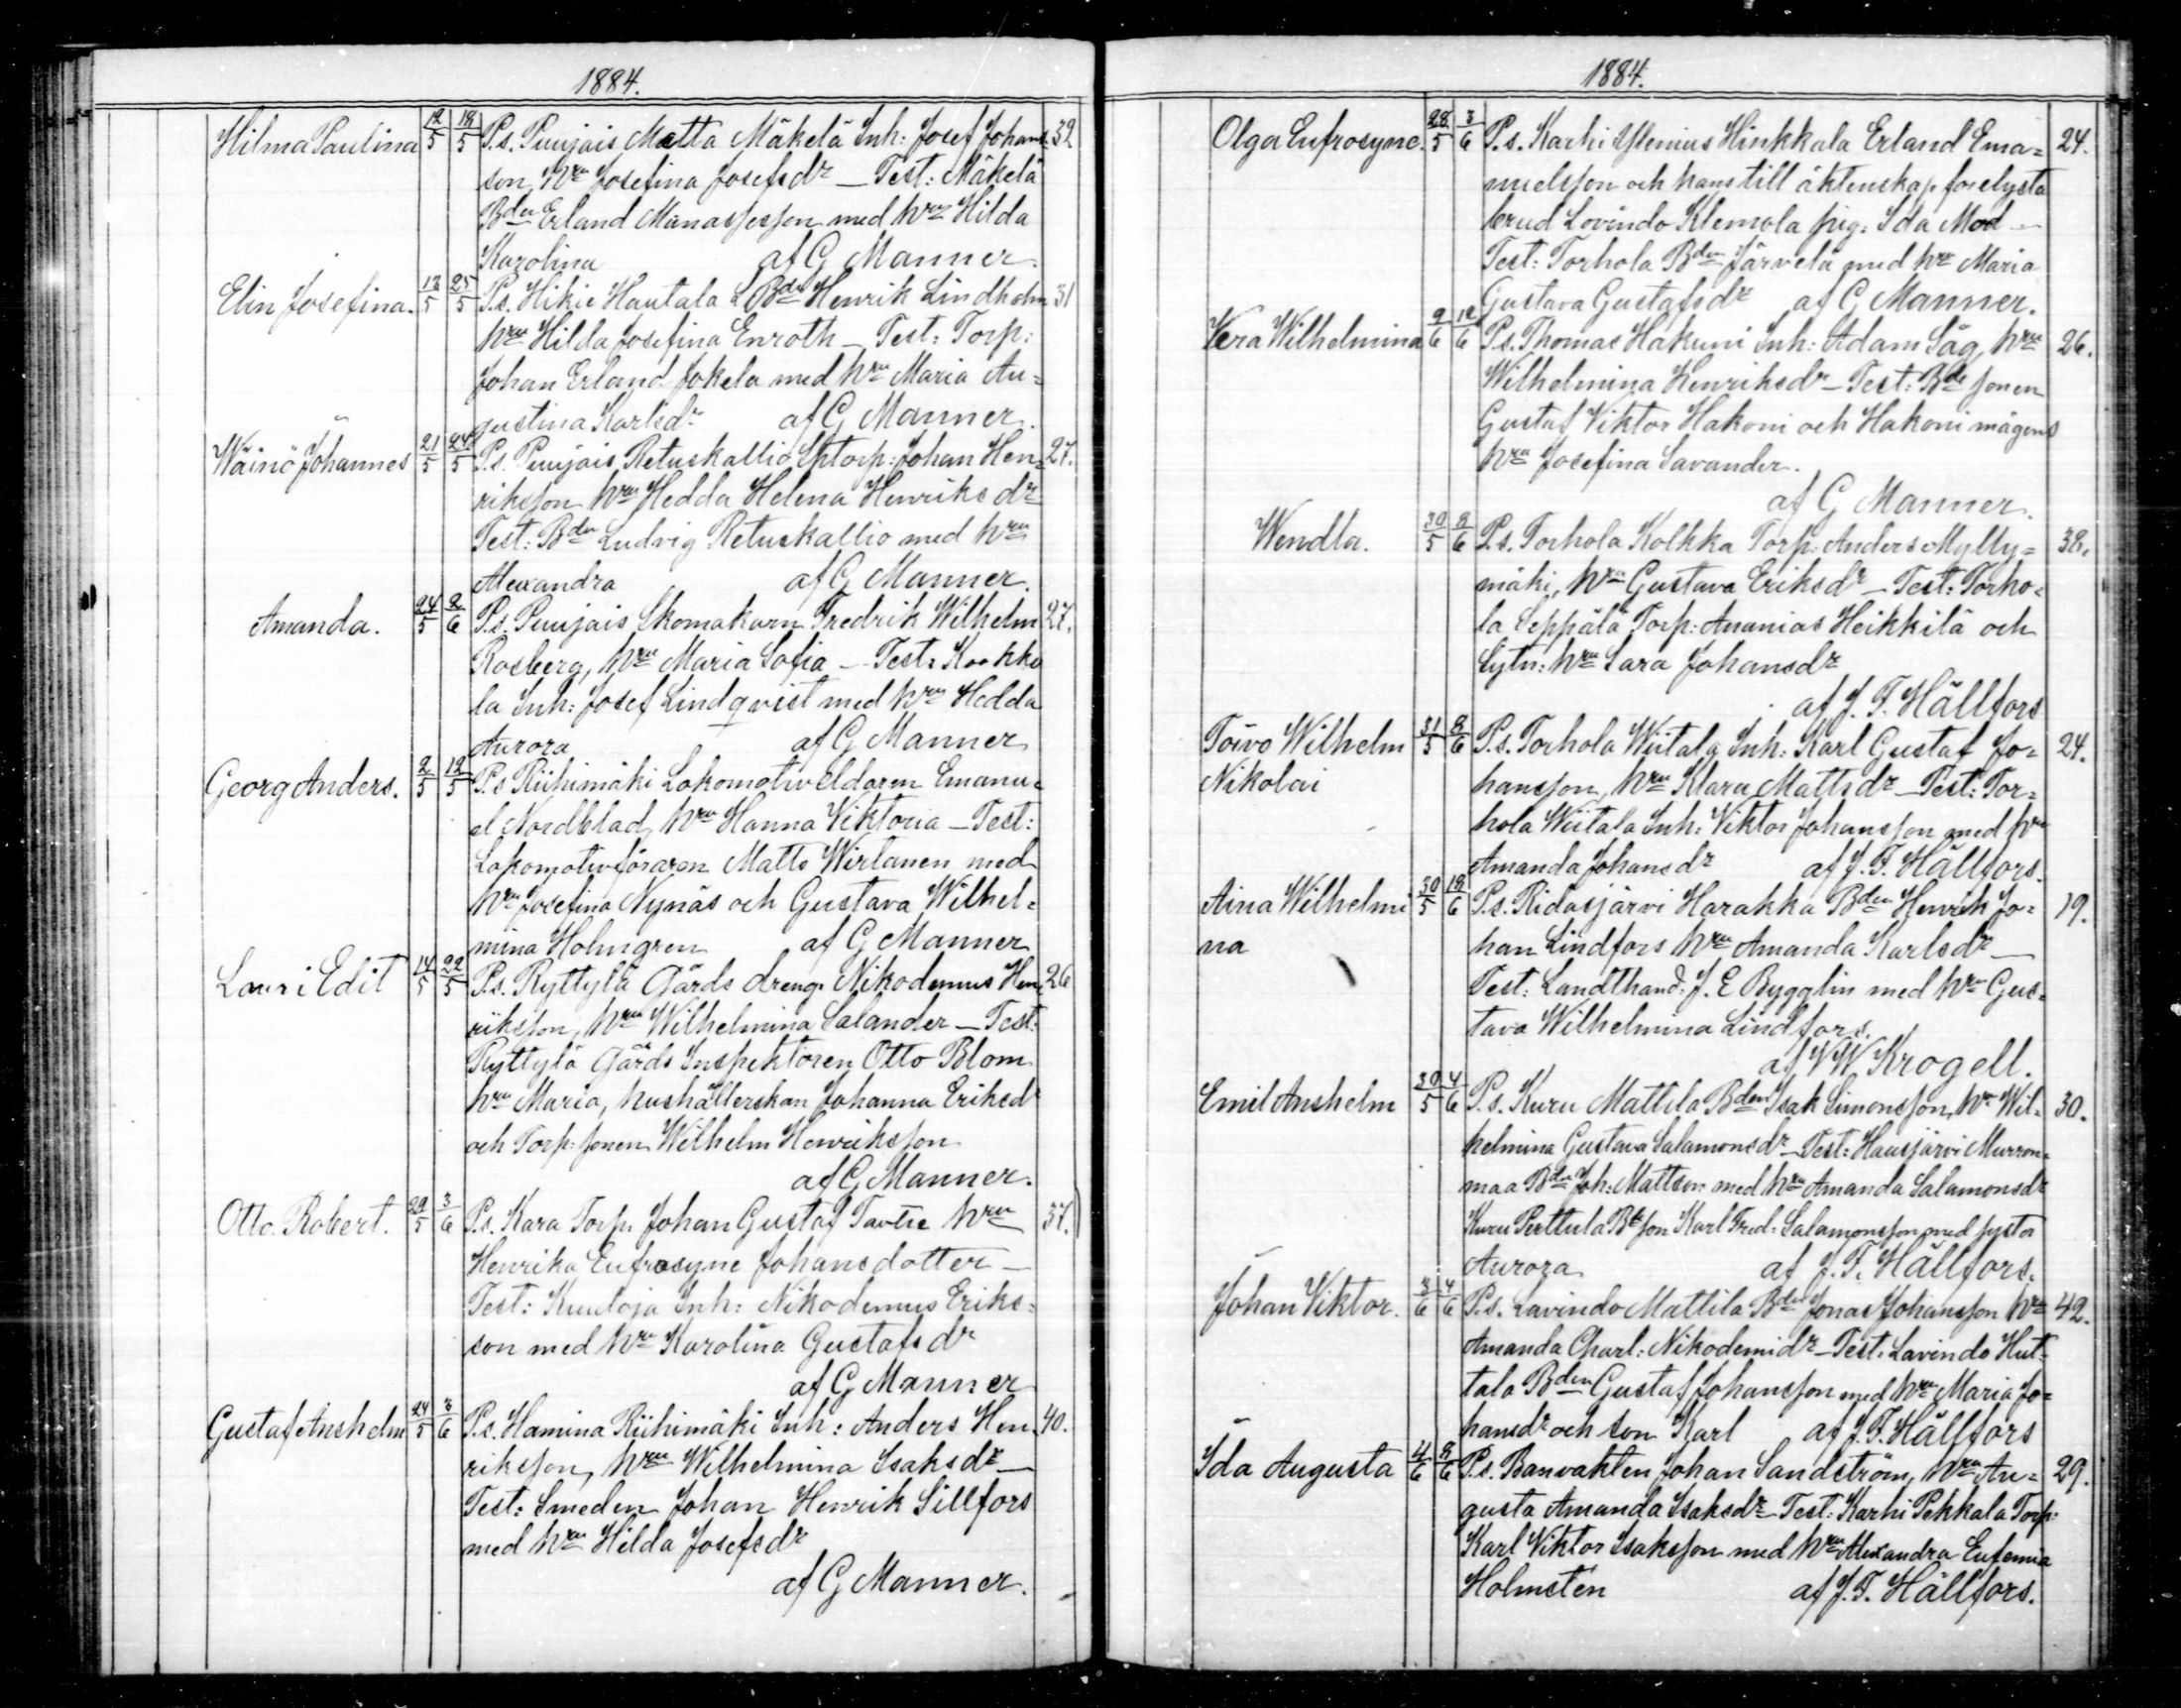 1884.
Hilma Paulina 12/5 18/5 P.s. Puujais Matta Mäkelä Inh: Josef Johans- 32
son, hru Josefina Josefsdr — Test: Mäkelä
Bden Erland Manassesson med hru Hilda
Karolina af G Manner.
Elin Josefina. 13/5 25/5 P.s. Hikie Hautala Bde Henrik Lindholm 31
hru Hilda Josefina Enroth — Test: Torp:
Johan Erland Jokela med hru Maria Au=
gustina Karlsdr af G Manner.
Wäinö Johannes 21/5 24/5 P.s. Puujais Retuskallio Sptorp: Johan Hen= 27.
riksson hru Hedda Helena Henriksdr
Test: Bden Ludvig Retuskallio med hru
Alexandra af G Manner.
Amanda. 24/5 2/6 P.s. Puujais Skomakarn Fredrik Wilhelm 27.
Rosberg, hru Maria Sofia — Test: Kookko
la Inh: Josef Lindqvist med hru Hedda
Aurora af G Manner
Georg Anders. 2/5 12/5 P.s Riihimäki Lokomotiveldaren Emanu=
el Nordblad, hru Hanna Viktoria — Test:
Lokomotivföraren Matts Wirtanen med
hru Josefina Nynäs och Gustava Wilhel=
mina Holmgren af G Manner
Lauri Edit 14/5 22/5 P.s. Ryttylä Gårds dreng. Nikodemus Hen 26
riksson, hru Wilhelmina Salander — Test:
Ryttylä Gårds Inspektoren Otto Blom
hru Maria, hushållerskan Johanna Eriksdr
och Torp: sonen Wilhelm Henriksson
af G Manner.
Otto Robert. 29/5 3/6 P.s. Kara Torp. Johan Gustaf hru 37.
Henrika Eufrosyne Johansdotter —
Test: Kuuloja Inh: Nikodemus Eriks=
son med hru Karolina Gustafsdr
af G Manner
Gustaf Anshelm 24/5 3/6 P.s. Hamina Riihimäki Inh: Anders Hen 40.
riksson, hru Wilhelmina Isaksdr —
Test: Smeden Johan Henrik Sillfors
med hru Hilda Josefsdr
af G Manner.
1884.
Olga Eufrosyne. 28/5 3/6 P.s. Karhi Hinkkala Erland Ema= 24.
nuelsson och hans till äktenskap forelysta
brud Lovindo Klemola pig: Ida Mod —
Test: Torhola Bden Järvelä med hru Maria
Gustava Gustafsdr af G Manner.
Vera Wilhelmina 9/6 12/6 P.s. Thomas Hakuni Inh: Adam Såg, hru 26.
Wilhelmina Henriksdr — Test: Bde sonen
Gustaf Viktor Hakoni och Hakoni mågens
hru Josefina Savander.
af G Manner.
Wendla. 30/5 8/6 P.s. Torhola Kolkka Torp: Anders Mylly= 38.
mäki, hru Gustava Eriksdr — Test: Torho=
la Seppälä Torp: Ananias Heikkilä och
Sytn: hru Sara Johansdr
af J. F. Hällfors
Toivo Wilhelm 31/5 8/6 P.s. Torhola Wiitala Inh: Karl Gustaf Jo= 24.
Nikolai hansson, hru Klara Mattsdr — Test: Tor=
hola Wiitala Inh: Viktor Johansson med hru
Amanda Johansdr af J. F. Hällfors.
Aina Wilhelmi 30/5 18/6 P.s. Ridasjärvi Harakka Bden Henrik Jo= 19.
na han Lindfors hru Amanda Karlsdr —
Test: Landthand: J. E Bygglin med hru Gus=
tava Wilhelmina Lindfors.
af W Krogell.
Emil Anshelm 30/5 4/6 P.s. Kuru Mattila Bden Isak Simonsson, hru Wil= 30.
helmina Gustava Salamonsdr — Test: Hausjärvi Murron=
maa Bden Joh: Mattson med hru Amanda Salamonsdr
Kuru Perttula Bde son Karl Fred: Salamonsson med syster
Aurora af J. F. Hällfors.
Johan Viktor. 3/6 4/6 P.s. Lavindo Mattila Bden Jonas Johansson hru 42.
Amanda Charl: Nikodemidr — Test: Lavindo Hut=
tala Bden Gustaf Johansson med hru Maria Jo=
hansdr och son Karl af J. F. Hällfors
Ida Augusta 4/6 8/6 P.s. Banvakten Johan Sandström, hru Au= 29.
gusta Amanda Isaksdr — Test: Karhi Pekkala Torp:
Karl Viktor Isaksson med hru Alexandra Eufemia
Holmstén af J. F. Hällfors.